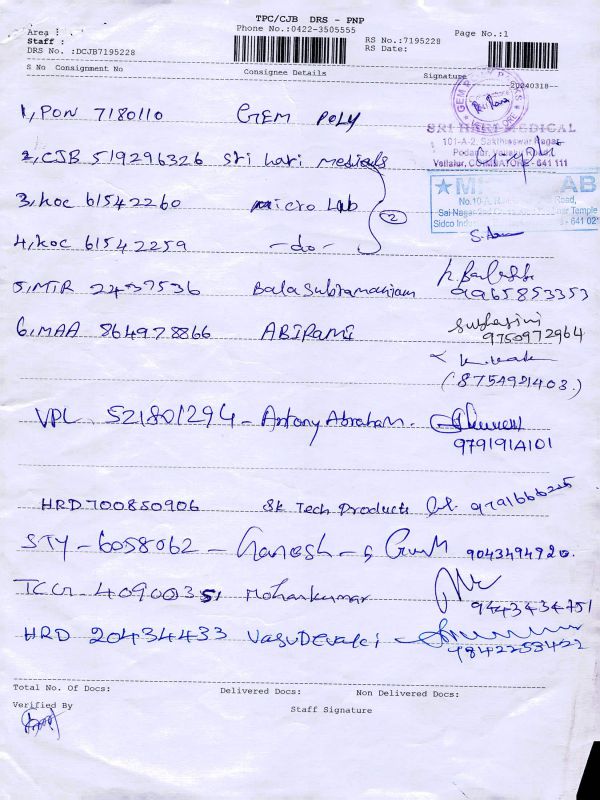 TPC/CJB DRS - PNP
Area :
Phone No.:0422-3505555
Page No.:1
Staff :
RS No.:7195228
DRS No. :DCJB7195228
RS Date:
S No Consignment No Consignee Details Signature 20240318
1, PON 7180110 GEM POLY
SRI HARI MEDICAL
2, CJB 519296326 Sri Hari Medicals
101-A-2, Sakthieswar Nagar,
Vellalur, COIMBATORE - 641 111
3, KOC 61542260 Micro Lab
2
No.10-A, Road,
Sai Nagar Temple
Sidco Indu - 641 02
4, KOC 61542259 -do-
5, MTR 2437536 Balasubramaniam
9965853353
6, MAA 864978866 ABIRAMI
Suhasini
9750972964
(8754921403.)
VPL 521801294 - Antony Abraham.
9791914101
HRD 700850906 SK Tech Products
STY - 6058062 - Ganesh - 9043494920.
TCG - 4090035 Mohankumar
9443434751
HRD 20434433 VASUDEVAKI -
9842253422
Total No. Of Docs: Delivered Docs: Non Delivered Docs:
Verified By Staff Signature